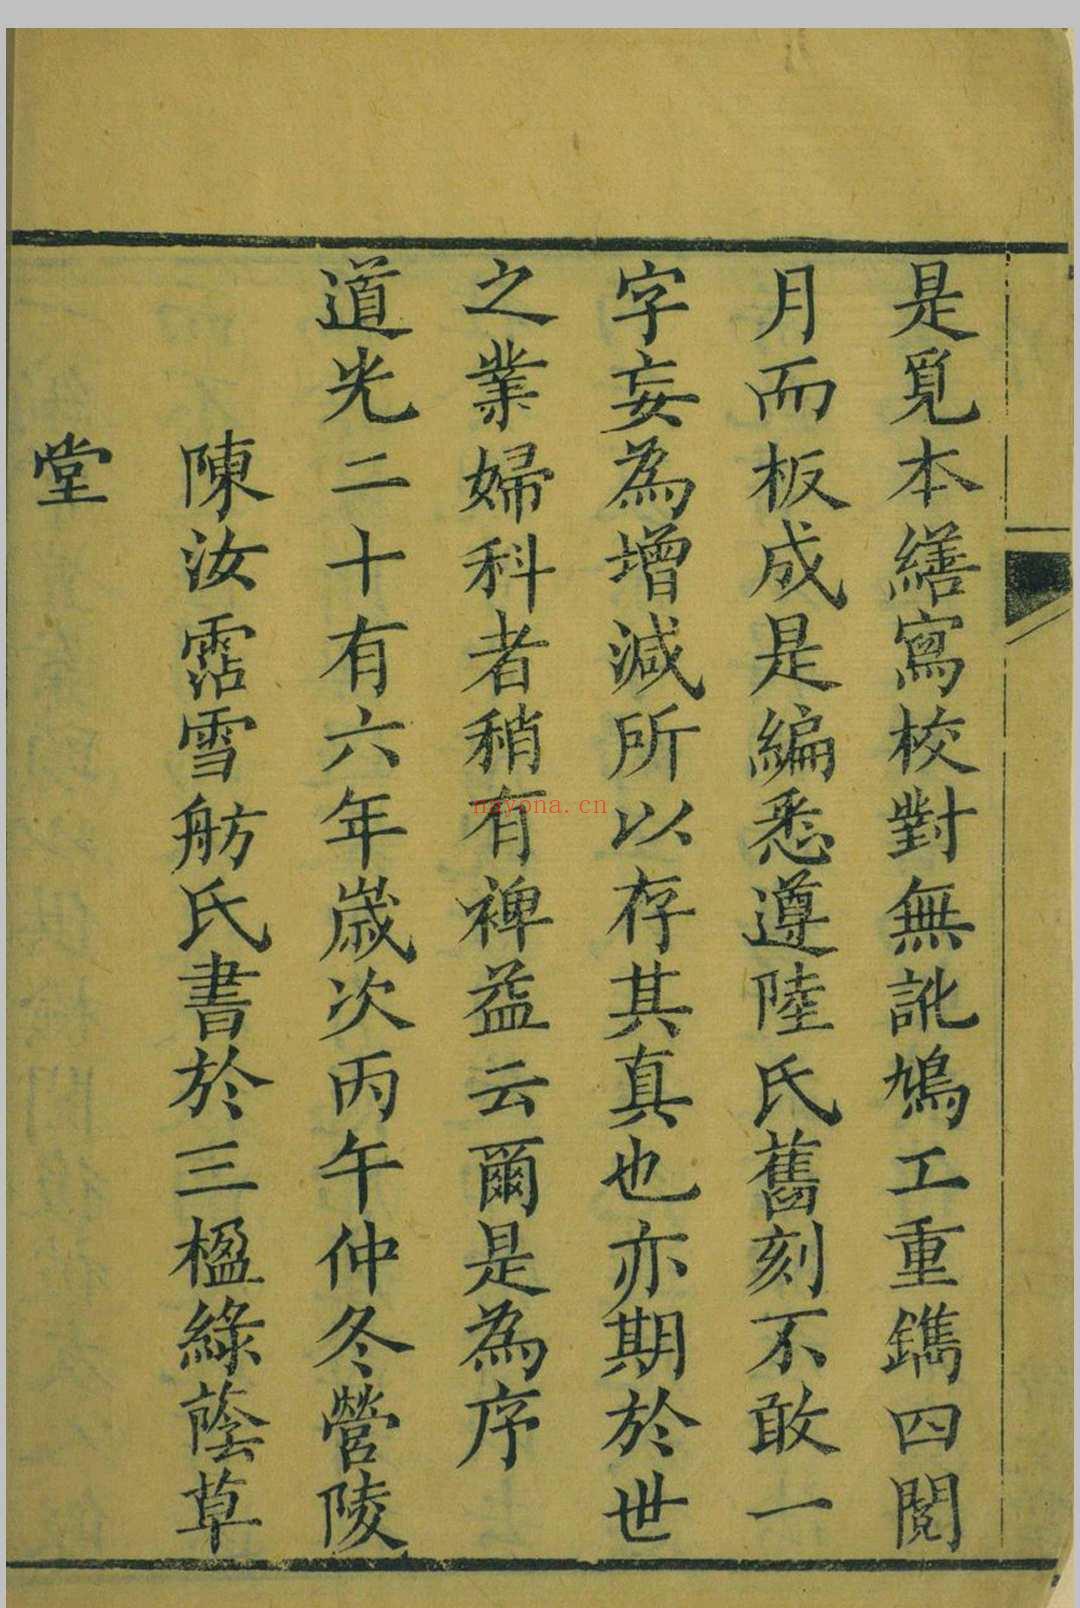 是覓本繕寫校對無訛鳩工重鐫四閱
月而板成是編悉遵陸氏舊刻不敢一
字妄為增減所以存其真也亦期於世
之業婦科者稍有裨益云爾是為序
道光二十有六年歲次丙午仲冬營陵
陳汝霑雪舫氏書於三楹綠蔭草
堂
nayona.cn